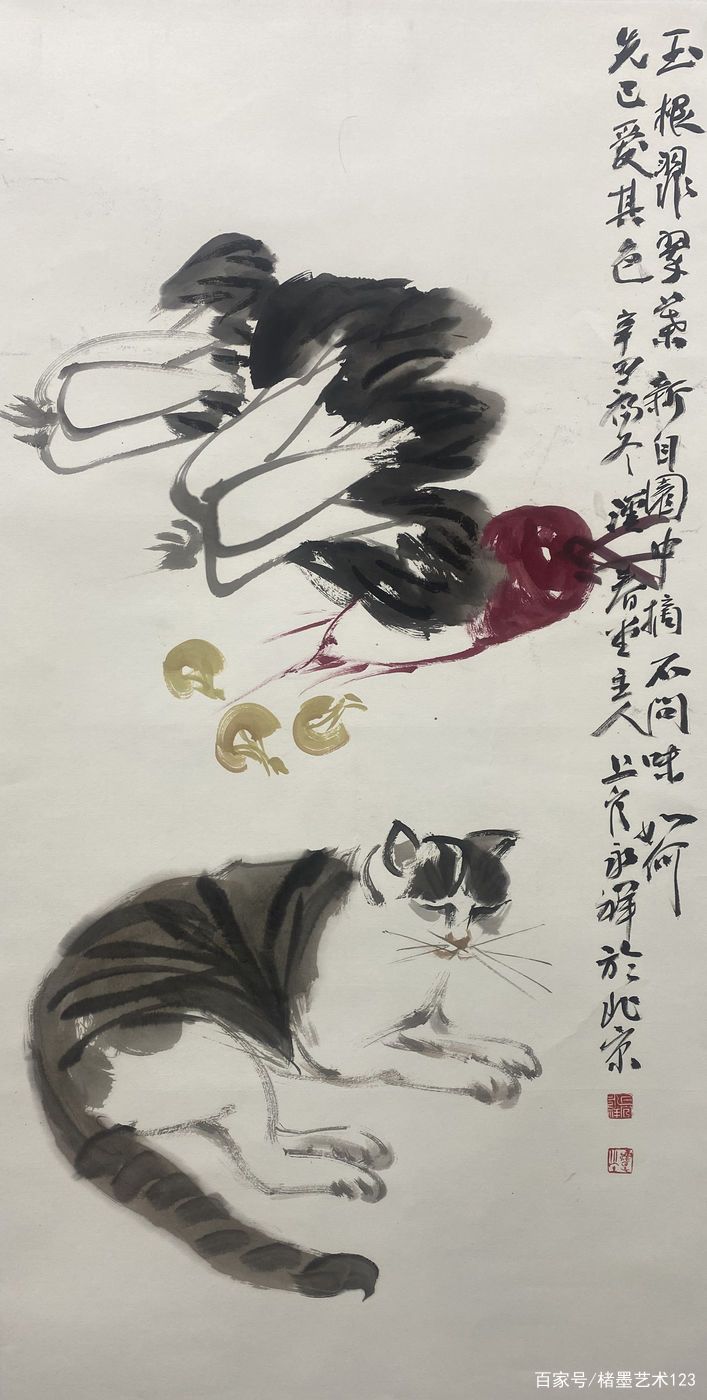 玉根翡翠葉新自園中摘不問味如何
先已愛其色 辛丑冬春堂主人 上官永祥於北京
百家号/楮墨艺术123